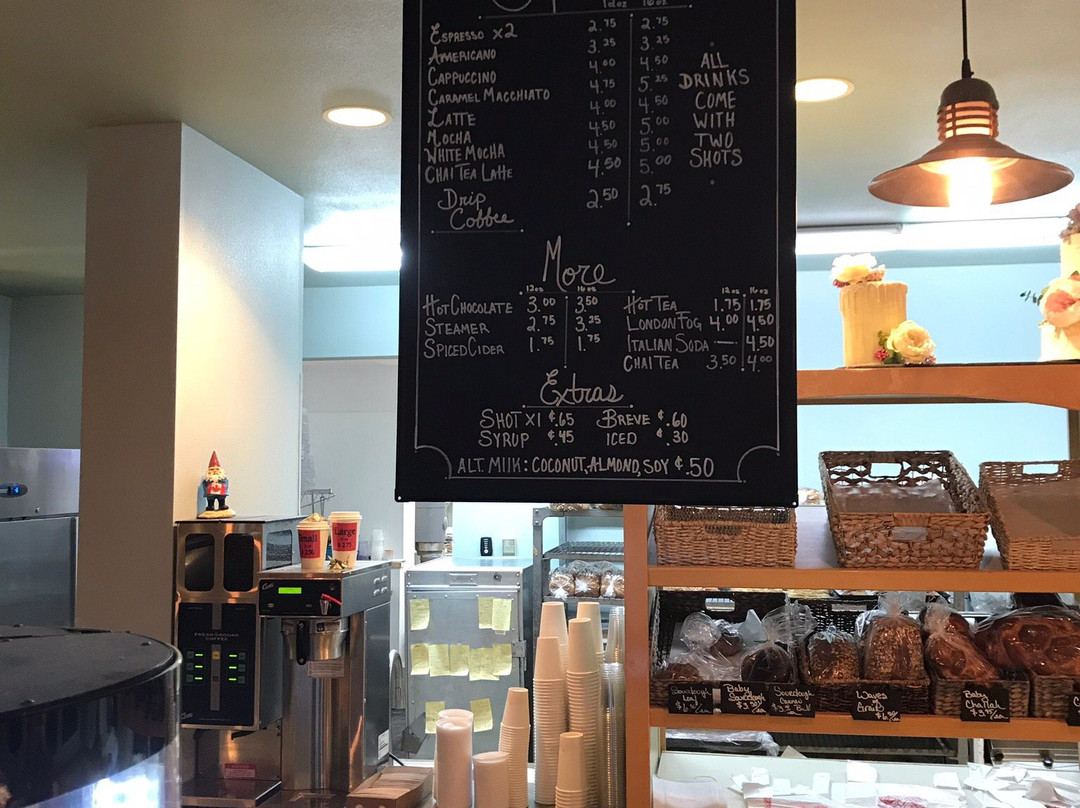 12oz 16oz
ESPRESSO x2 2.75 2.75
AMERICANO 3.25 3.25
CAPPUCCINO 4.00 4.50
CARAMEL MACCHIATO 4.75 5.25
LATTE 4.00 4.50
MOCHA 4.50 5.00
WHITE MOCHA 4.50 5.00
CHAI TEA LATTE 4.50 5.00
Drip
Coffee 2.50 2.75
ALL
DRINKS
COME
WITH
TWO
SHOTS
More
12oz 16oz
HOT CHOCOLATE 3.00 3.50
STEAMER 2.75 3.25
SPICED CIDER 1.75 1.75
12oz 16oz
HOT TEA 1.75 1.75
LONDON FOG 4.00 4.50
ITALIAN SODA — 4.50
CHAI TEA 3.50 4.00
Extras
SHOT X1 ¢.65 BREVE ¢.60
SYRUP ¢.45 ICED ¢.30
ALT. MILK: COCONUT, ALMOND, SOY ¢.50
Small
Large
FRESH GROUND
COFFEE
Sourdough
Baby
Sourdough
Sourdough
Waves
Baby
Challah